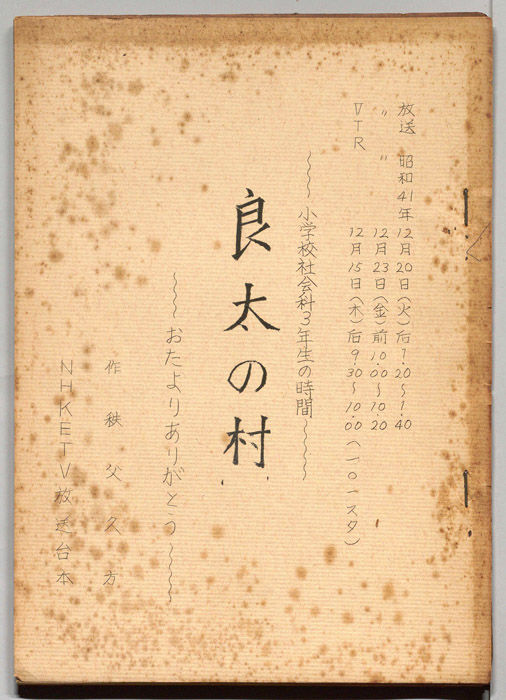 放送 昭和41年12月20日(火)后1.20〜1.40
〃 〃 12月23日(金)前10.00〜10.20
VTR 12月15日(木)后9.30〜10.00(一〇一スタ)
〜〜小学校社会科3年生の時間〜〜
良太の村
〜〜おたよりありがとう〜〜
作 秩父久方
NHKETV放送台本